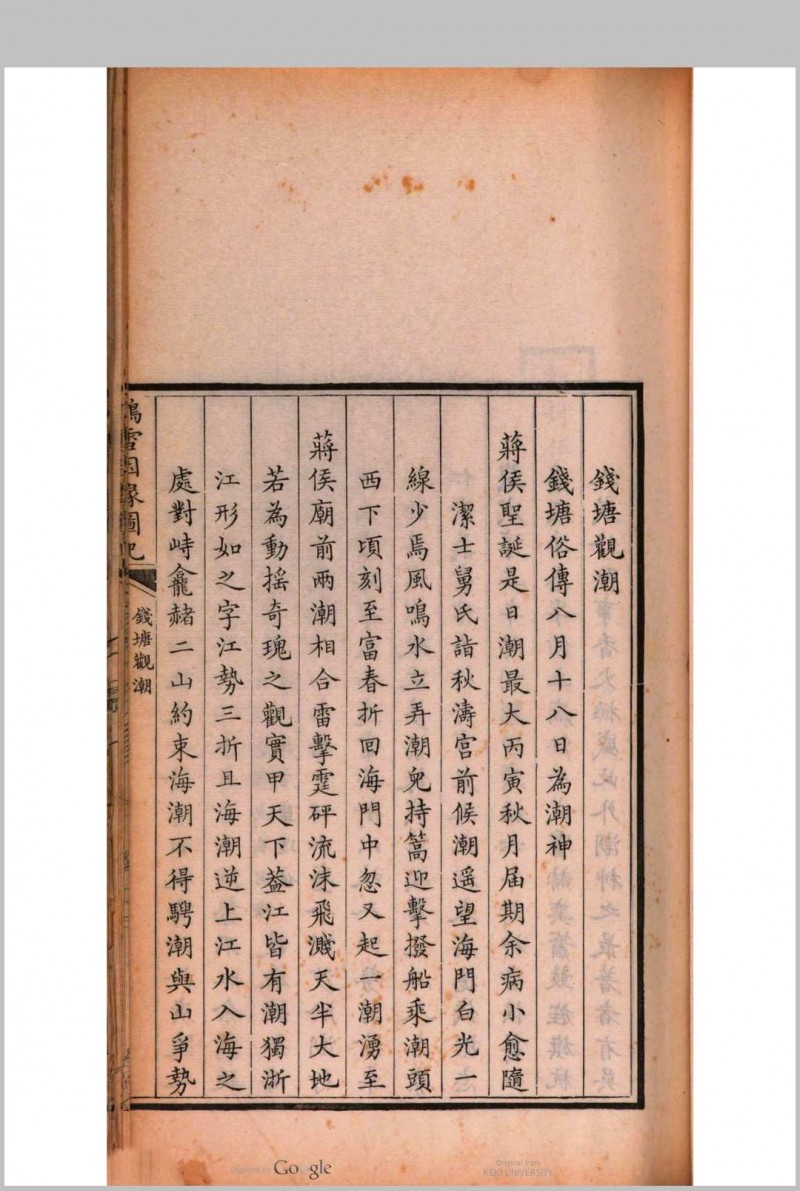 錢塘觀潮
錢塘俗傳八月十八日為潮神
蔣侯聖誕是日潮最大丙寅秋月屆期余病小愈隨
潔士舅氏詣秋濤宮前候潮遥望海門白光一
線少焉風鳴水立弄潮兒持篙迎擊撥船乘潮頭
西下頃刻至富春折回海門中忽又起一潮湧至
蔣侯廟前兩潮相合雷擊霆砰流沫飛濺天半大地
若為動搖奇瑰之觀實甲天下葢江皆有潮獨浙
江形如之字江勢三折且海潮逆上江水入海之
處對峙龕赭二山約束海潮不得騁潮與山爭勢
鴻雪因緣圖記
錢塘觀潮
Google
Original from
KEIO UNIVERSITY